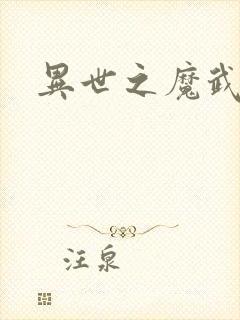 異世之魔武
汪泉